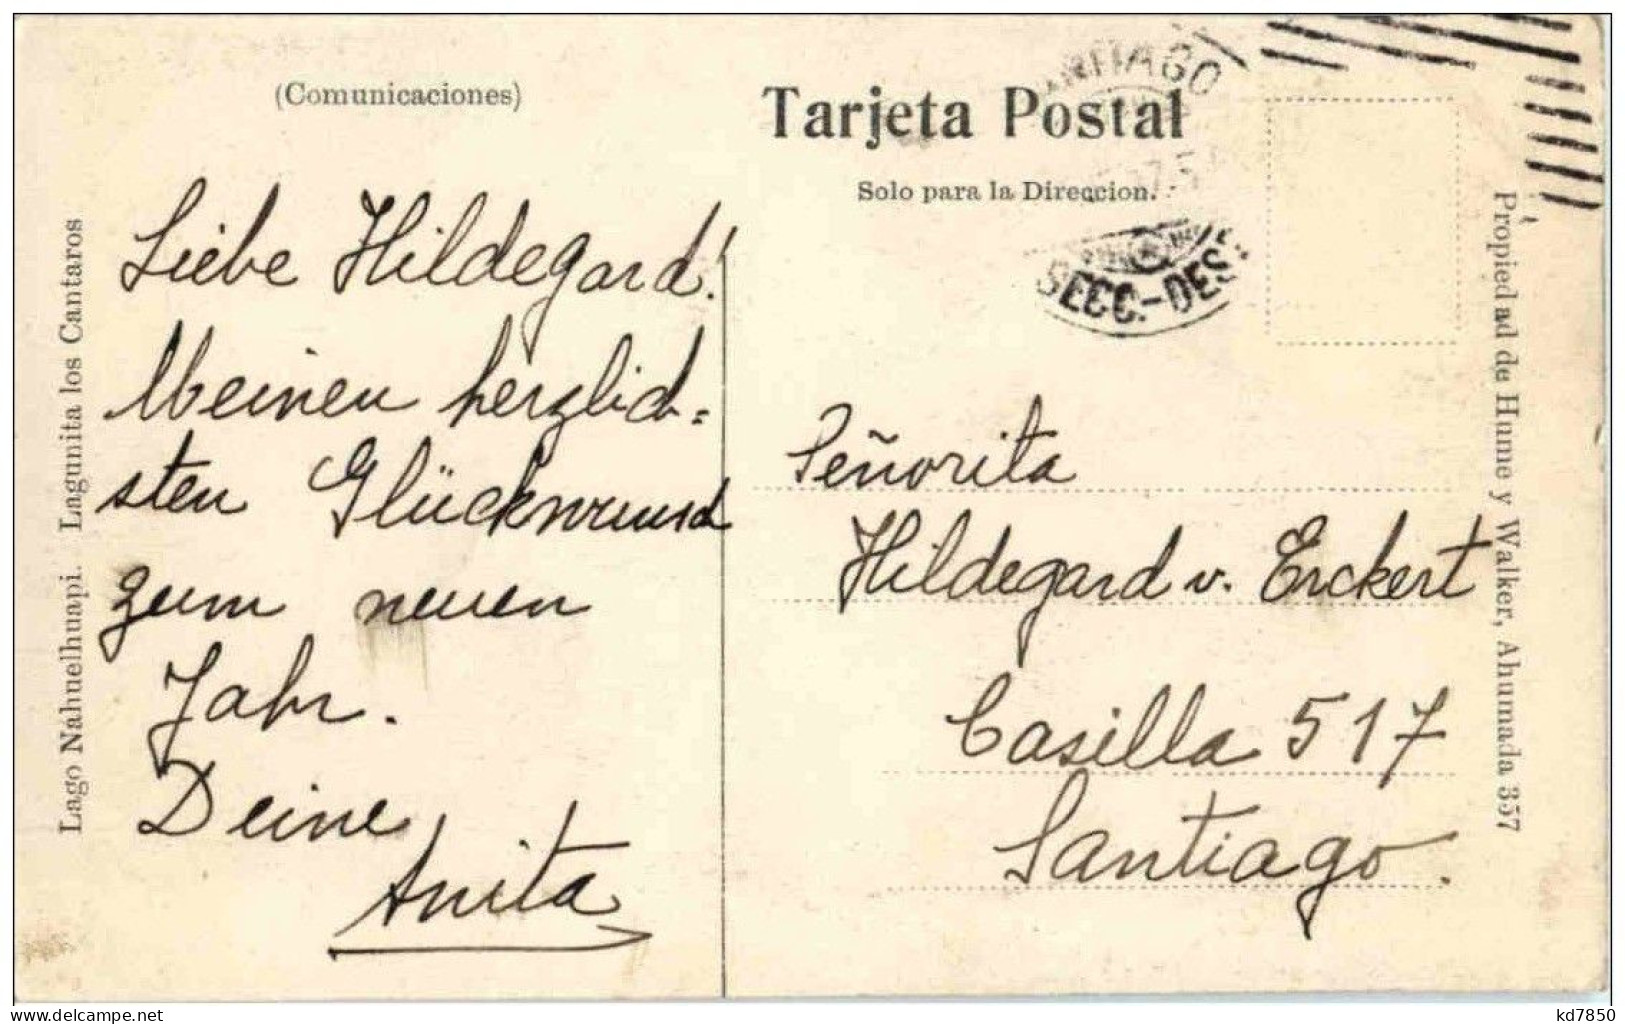 (Comunicaciones)
Tarjeta Postal
Solo para la Direccion.
SANTIAGO
SECC.-DES
Lago Nahuelhuapi. Lagunita los Cantaros
Liebe Hildegard!
Meinen herzlich=
sten Glückwunsch
zum neuen
Jahr.
Deine
Anita
Señorita
Hildegard v. Erckert
Casilla 517
Santiago.
Propiedad de Hume y Walker, Ahumada 357
delcampe.net
kd7850